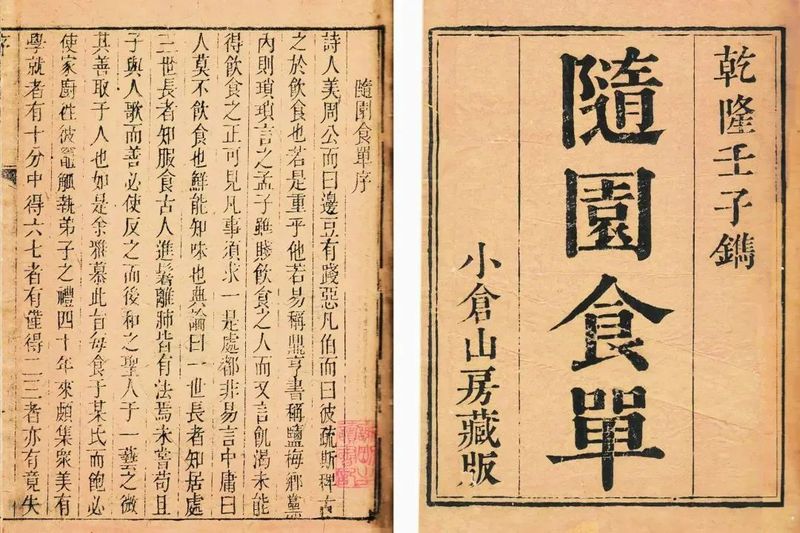 乾隆壬子鐫
隨園食單
小倉山房藏版
隨園食單序
詩人美周公而曰邊豆有踐惡凡伯而曰彼疏斯稗古
之於飲食也若是重乎他若易稱鼎亨書稱鹽梅鄉黨
內則瑣瑣言之孟子雖賤飲食之人而又言飢渴未能
得飲食之正可見凡事須求一是處都非易言中庸曰
人莫不飲食也鮮能知味也典論曰一世長者知居處
三世長者知服食古人進鬐離肺皆有法焉未嘗苟且
子與人歌而善必使反之而後和之聖人于一藝之微
其善取于人也如是余雅慕此旨每食于某氏而飽必
使家廚往彼竈觚執弟子之禮四十年來頗集衆美有
學就者有十分中得六七者有僅得二三者亦有竟失